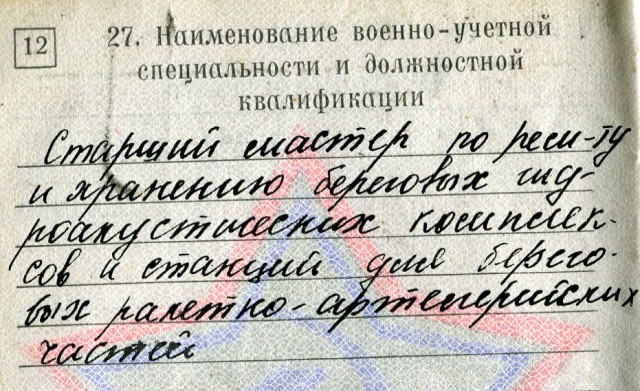 12
27. Наименование военно-учетной
специальности и должностной
квалификации
Старший мастер по рем-ту
и хранению береговых гид-
роакустических комплек-
сов и станций для берего-
вых ракетно-артиллерийских
частей